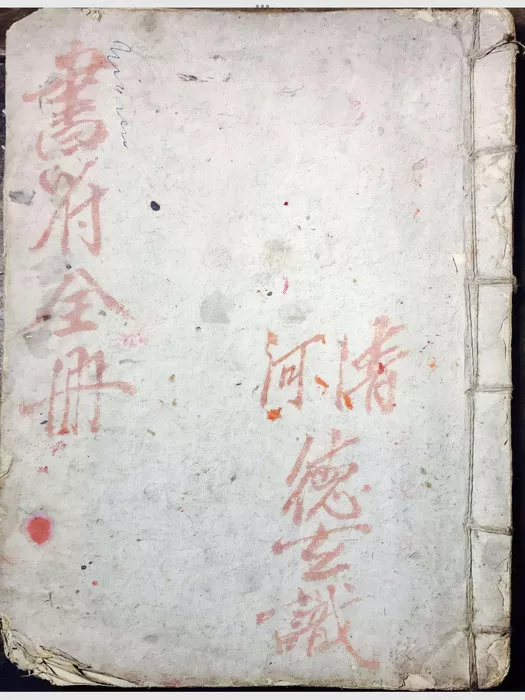 清河
德玄識
書符全冊